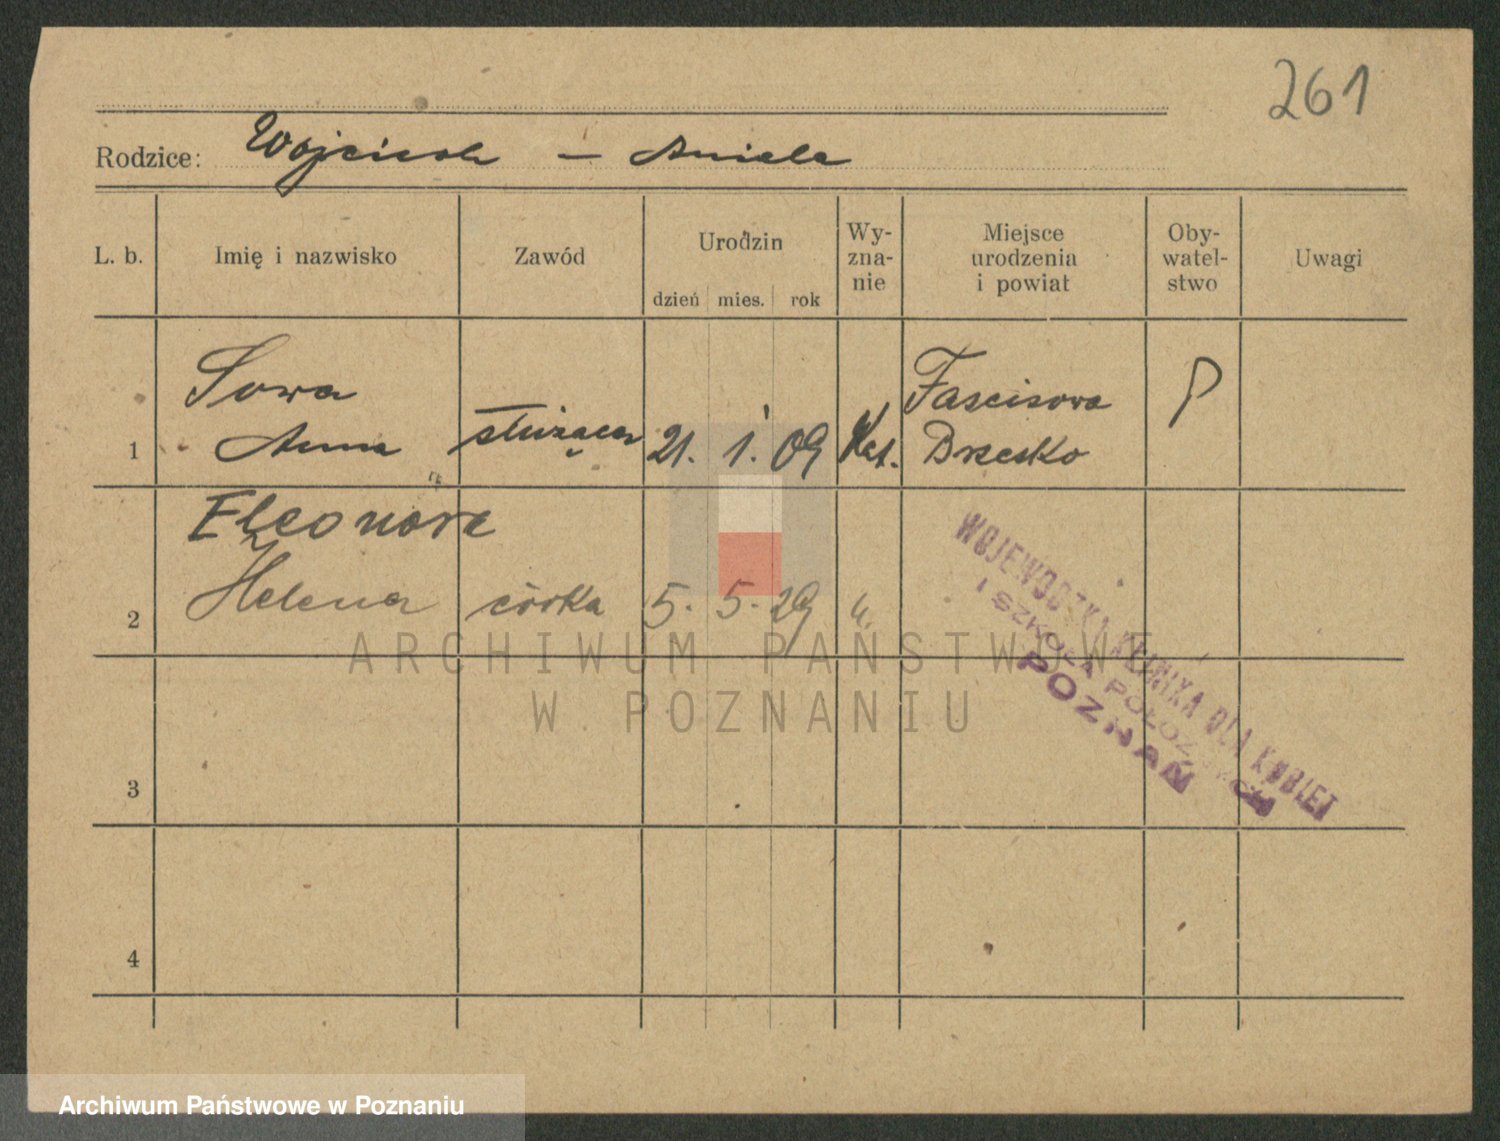 261
Rodzice: Wojciech – Aniela
L. b. Imię i nazwisko Zawód Urodzin dzień mies. rok Wy-zna-nie Miejsce urodzenia i powiat Oby-watel-stwo Uwagi
Sowa Fascisowa P
1 Anna służąca 21. 1. 09 Kat. Brzesko
Eleonora
2 Helena córka 5. 5. 29 "
3
4
WOJEWÓDZKA KLINIKA DLA KOBIET
I SZKOŁA POŁOŻNYCH
POZNAŃ
ARCHIWUM PAŃSTWOWE
W POZNANIU
Archiwum Państwowe w Poznaniu